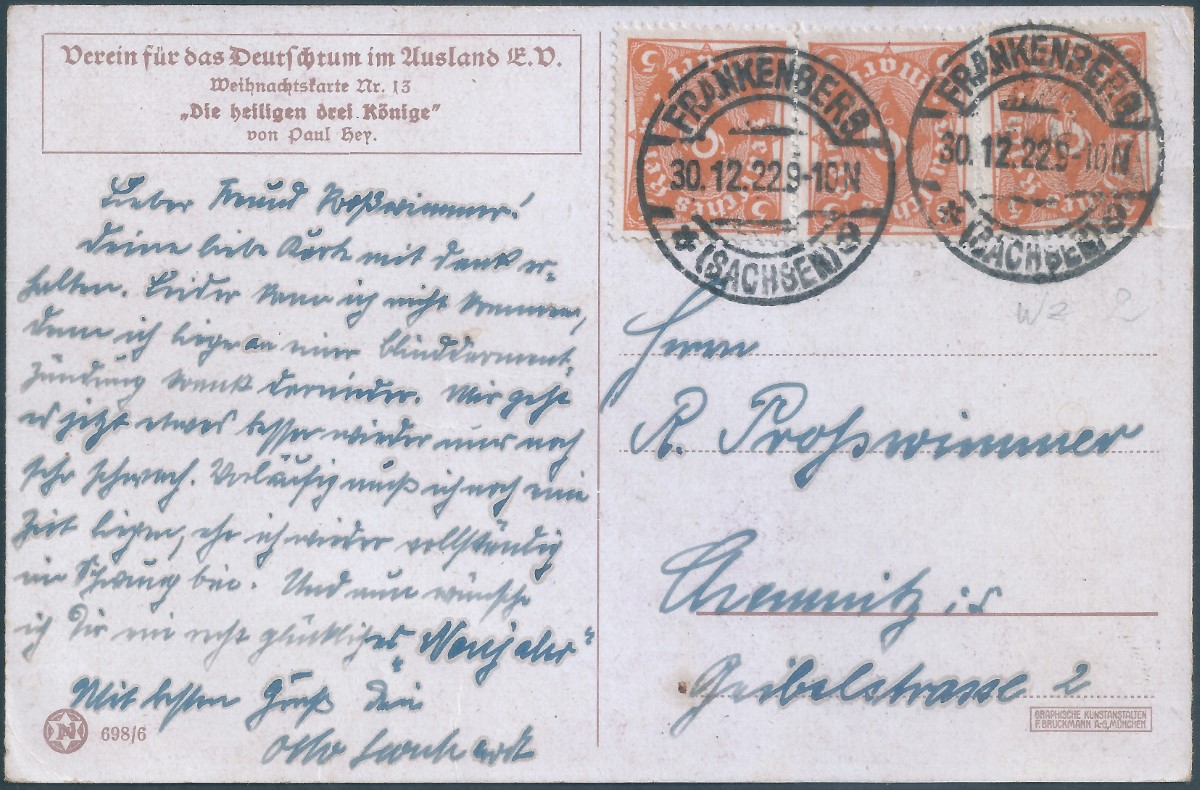 Verein für das Deutschtum im Ausland E.V.
Weihnachtskarte Nr. 13
„Die heiligen drei Könige"
von Paul Hey.
Lieber Freund Proßwimmer!
Deine liebe Karte mit Dank er-
halten. Leider kann ich nicht kommen,
denn ich liege an einer Blinddarment-
zündung krank darnieder. Mir geht
es jetzt etwas besser wieder nur noch
sehr schwach. Vorläufig muß ich noch eine
Zeit liegen, ehe ich wieder vollständig
im Schwung bin. Und nun wünsche
ich Dir ein recht glückliches „Neujahr"
Mit besten Gruß Dein
Otto
N 698/6
FRANKENBERG
30.12.22.9-10N
* (SACHSEN)
FRANKENBERG
30.12.22.9-10N
* (SACHSEN)
5 Mark 5
Deutsches Reich
WZ 2
Herrn
R. Proßwimmer
Chemnitz i. S
Geibelstrasse 2
GRAPHISCHE KUNSTANSTALTEN
F. BRUCKMANN A-G, MÜNCHEN